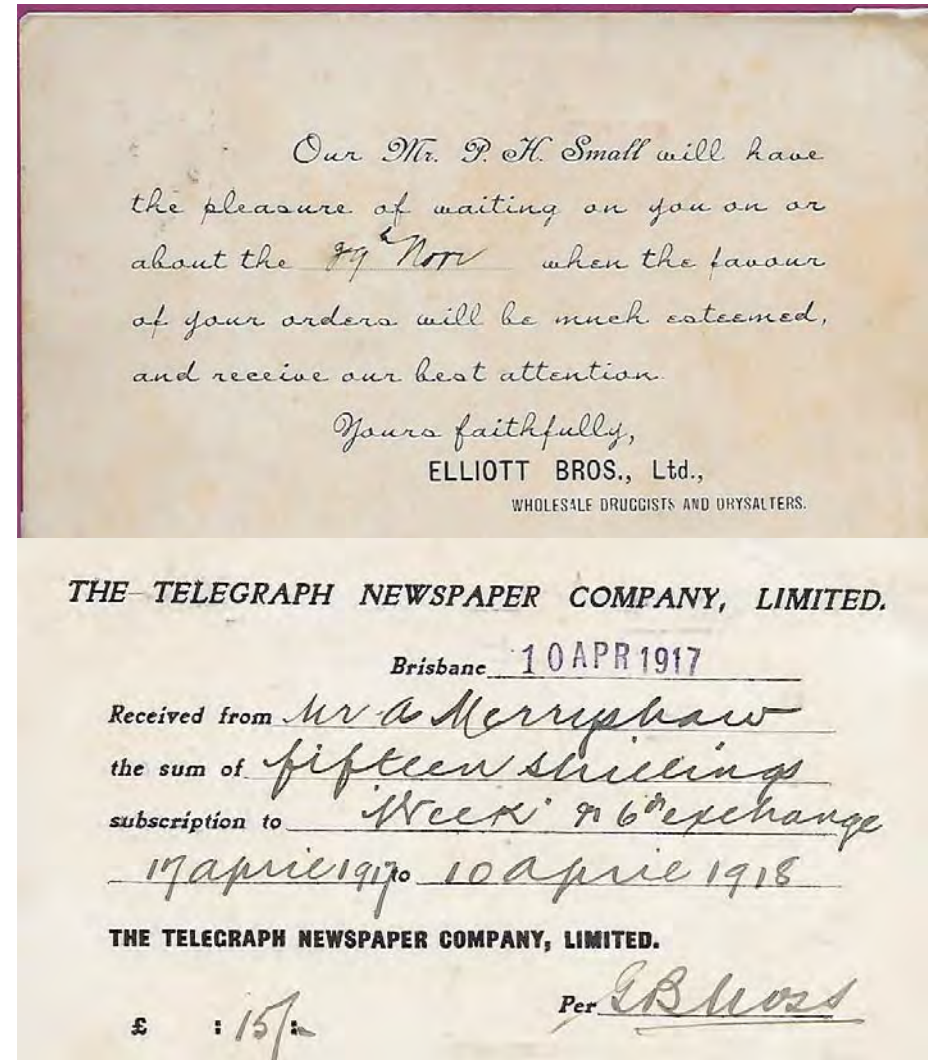 Our Mr. P. H. Small will have
the pleasure of waiting on you on or
about the 29th Novr when the favour
of your orders will be much esteemed,
and receive our best attention.
Yours faithfully,
ELLIOTT BROS., Ltd.,
WHOLESALE DRUGGISTS AND DRYSALTERS.
THE TELEGRAPH NEWSPAPER COMPANY, LIMITED.
Brisbane 10 APR 1917
Received from Mr A Merryshaw
the sum of fifteen shillings
subscription to Week exchange
17 april 1917 to 10 april 1918
THE TELEGRAPH NEWSPAPER COMPANY, LIMITED.
Per G B Moss
£ : 15/- :